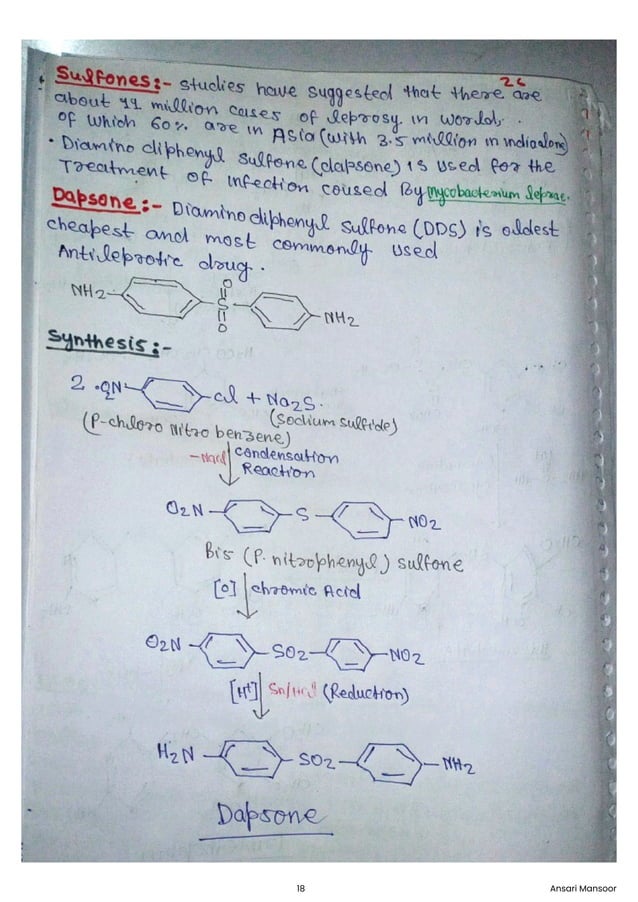 26
Sulfones:- studies have suggested that there are
about 11 million cases of leprosy in world,
of which 60% are in Asia (with 3.5 million in india alone)
• Diamino diphenyl sulfone (dapsone) is used for the
Treatment of infection coused By Mycobacterium leprae.
Dapsone:- Diamino diphenyl sulfone (DDS) is oldest
cheapest and most commonly used
Antileprotic drug.
NH2 O S O NH2
Synthesis:-
2 .O2N cl + Na2S.
(Sodium sulfide)
(P-chloro Nitro benzene)
-Nacl condensation
Reaction
O2N S NO2
Bis (P. nitrophenyl) sulfone
[O] chromic Acid
O2N SO2 NO2
[H+] Sn/Hcl (Reduction)
H2N SO2 NH2
Dapsone
18
Ansari Mansoor